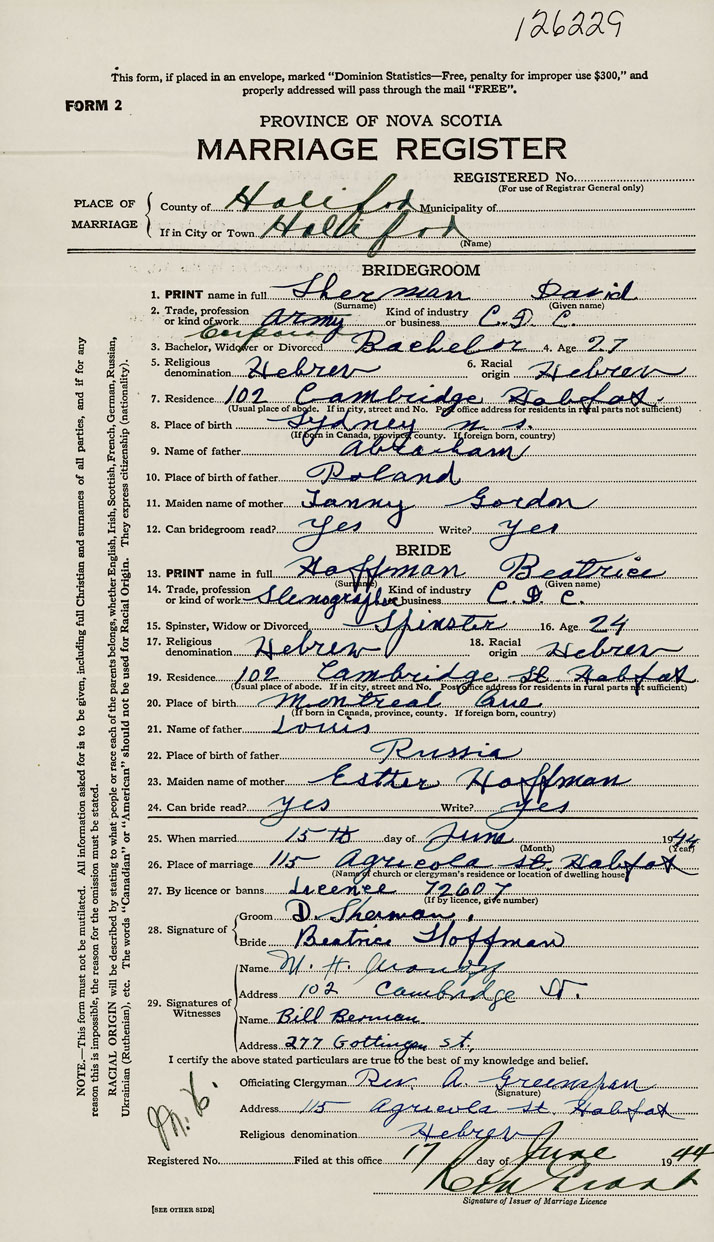 126229
This form, if placed in an envelope, marked "Dominion Statistics—Free, penalty for improper use $300," and
properly addressed will pass through the mail "FREE".
FORM 2
PROVINCE OF NOVA SCOTIA
MARRIAGE REGISTER
REGISTERED No.
(For use of Registrar General only)
PLACE OF MARRIAGE
County of Halifax Municipality of
If in City or Town Halifax
(Name)
BRIDEGROOM
1. PRINT name in full Sherman David
(Surname) (Given name)
2. Trade, profession or kind of work Army Corporal Kind of industry or business C. D. C.
3. Bachelor, Widower or Divorced Bachelor 4. Age 27
5. Religious denomination Hebrew 6. Racial origin Hebrew
7. Residence 102 Cambridge Halifax.
(Usual place of abode. If in city, street and No. Post office address for residents in rural parts not sufficient)
8. Place of birth Sydney n. s.
(If born in Canada, province, county. If foreign born, country)
9. Name of father Abraham
10. Place of birth of father Poland
11. Maiden name of mother Fanny Gordon
12. Can bridegroom read? Yes Write? Yes
BRIDE
13. PRINT name in full Hoffman Beatrice
(Surname) (Given name)
14. Trade, profession or kind of work Stenographer Kind of industry or business C. D. C.
15. Spinster, Widow or Divorced Spinster 16. Age 24
17. Religious denomination Hebrew 18. Racial origin Hebrew
19. Residence 102 Cambridge St Halifax
(Usual place of abode. If in city, street and No. Post office address for residents in rural parts not sufficient)
20. Place of birth Montreal Que
(If born in Canada, province, county. If foreign born, country)
21. Name of father Louis
22. Place of birth of father Russia
23. Maiden name of mother Esther Hoffman
24. Can bride read? yes Write? yes
25. When married 15th day of June 1944
(Month) (Year)
26. Place of marriage 115 Agricola St. Halifax
(Name of church or clergyman's residence or location of dwelling house)
27. By licence or banns Licence 72607
(If by licence, give number)
28. Signature of
Groom D. Sherman.
Bride Beatrice Hoffman
29. Signatures of Witnesses
Name M. H.
Address 102 Cambridge St.
Name Bill Berman
Address 277 Gottingen St.,
I certify the above stated particulars are true to the best of my knowledge and belief.
Officiating Clergyman Rev. A. Greenspan
(Signature)
Address 115 Agricola St. Halifax
Religious denomination Hebrew
Registered No. Filed at this office 17 day of June 1944
Signature of Issuer of Marriage Licence
[SEE OTHER SIDE]
NOTE.—This form must not be mutilated. All information asked for is to be given, including full Christian and surnames of all parties, and if for any
reason this is impossible, the reason for the omission must be stated.
RACIAL ORIGIN will be described by stating to what people or race each of the parents belongs, whether English, Irish, Scottish, French, German, Russian,
Ukrainian (Ruthenian), etc. The words "Canadian" or "American" should not be used for Racial Origin. They express citizenship (nationality).